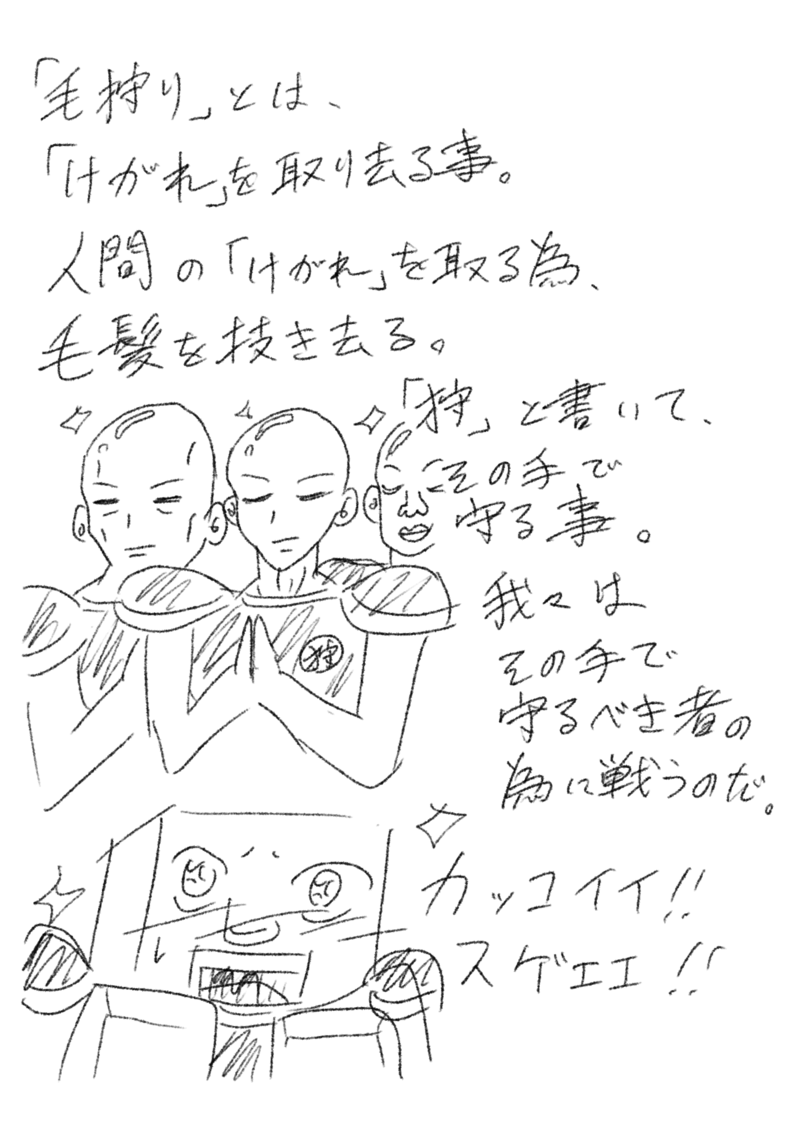 「毛狩り」とは、
「けがれ」を取り去る事。
人間の「けがれ」を取る為、
毛髪を技き去る。
「狩」と書いて、
その手で
守る事。
狩
我々は
その手で
守るべき者の
為に戦うのだ。
カッコイイ!!
スゲエエ!!